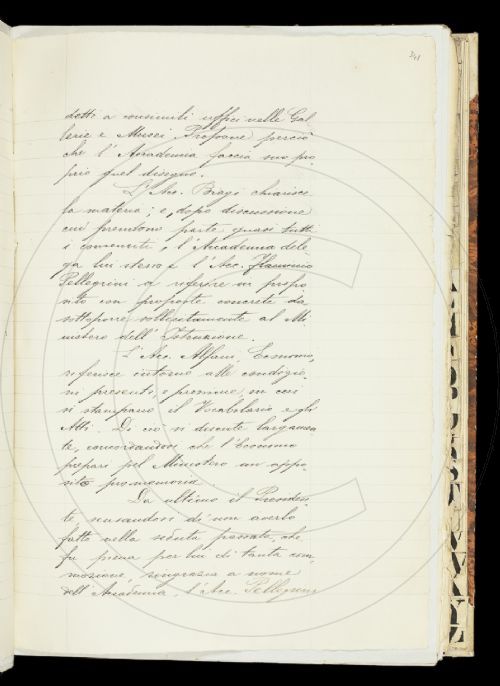 241
detti a consimili uffici nelle Gal-
lerie e Musei. Propone perciò
che l'Accademia faccia suo pro-
prio quel disegno.
L'Acc. Biagi chiarisce
la materia; e, dopo discussione
cui prendono parte quasi tutti
i convenuti, l'Accademia dele-
ga lui stesso e l'Acc. Flaminio
Pellegrini a riferire in propo-
sito con proposte concrete da
sottoporre sollecitamente al Mi-
nistero dell'Istruzione.
L'Acc. Alfani, Economo,
riferisce intorno alle condizio-
ni presenti, e promure, in cui
si stampano il Vocabolario e gli
Atti. Di ciò si discute largamen-
te, concordandosi che l'Economo
prepari pel Ministero un appo-
sito promemoria.
Da ultimo il Presiden-
te scusandosi di non averlo
fatto nella seduta passata, che
fu piena per lui di tanta com-
mozione, ringrazia a nome
dell'Accademia, l'Acc. Pellegrini